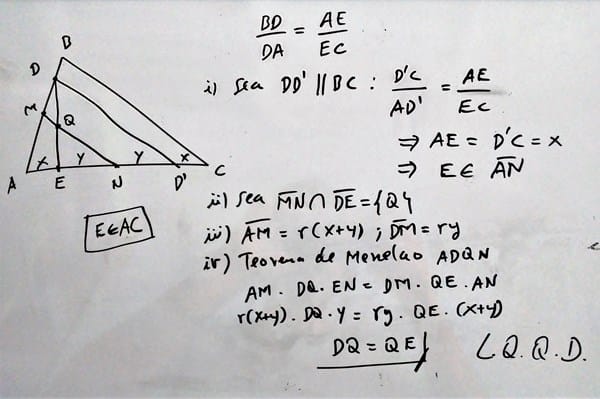 BD/DA = AE/EC
i) Sea DD' || BC : D'C/AD' = AE/EC
⇒ AE = D'C = x
⇒ E ∈ AN
ii) Sea MN ∩ DE = {Q}
iii) AM = r(x+y) ; DM = ry
iv) Teorema de Menelao ADQN
AM . DQ . EN = DM . QE . AN
r(x+y) . DQ . y = ry . QE . (x+y)
DQ = QE
L.Q.Q.D.
B
D
M
Q
x y y x
A E N D' C
E∈AC